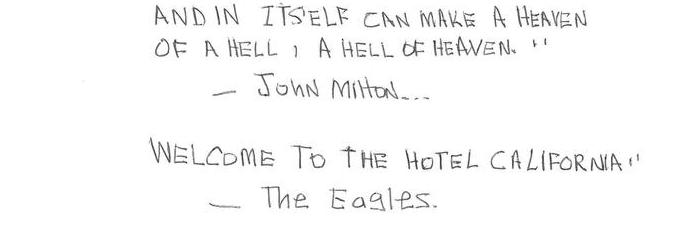 AND IN ITSELF CAN MAKE A HEAVEN
OF A HELL, A HELL OF HEAVEN."
— JOHN MILTON...
WELCOME TO THE HOTEL CALIFORNIA"
— The Eagles.